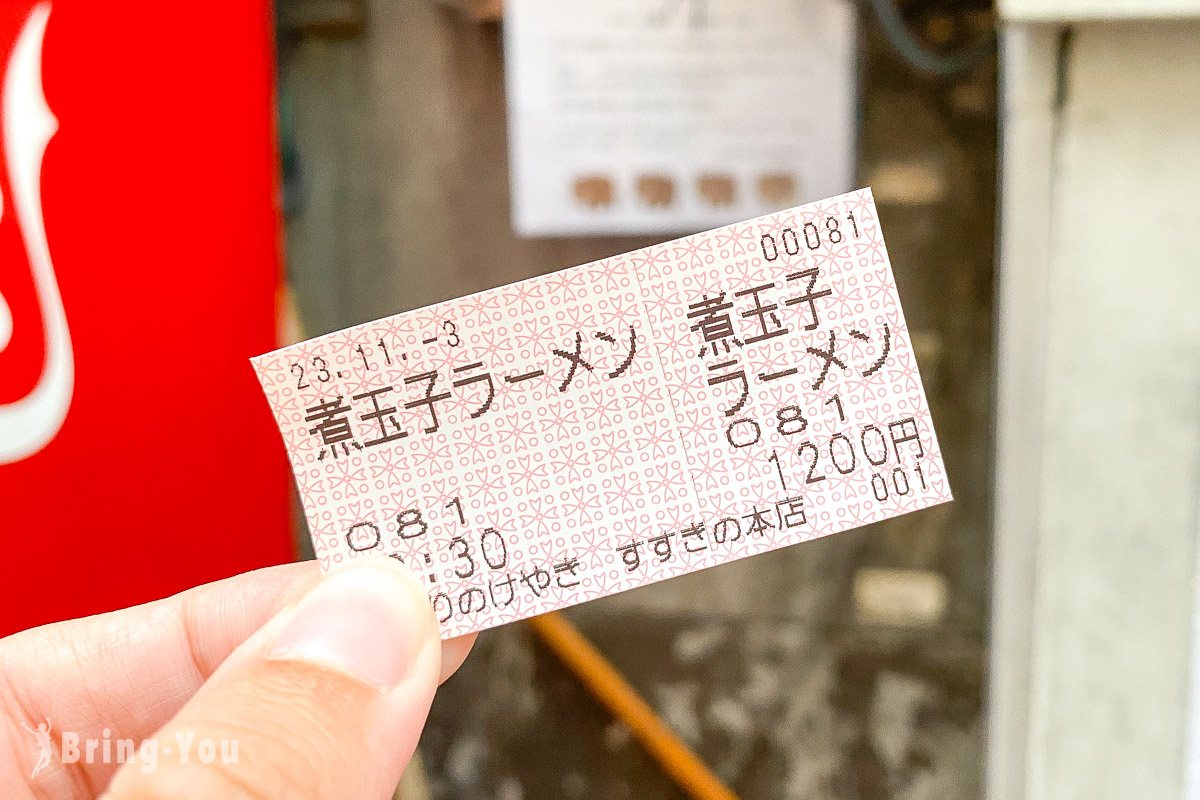 23.11.-3
煮玉子ラーメン
081
:30
のけやき すすきの本店
00081
煮玉子
ラーメン
081
1200円
001
Bring-You